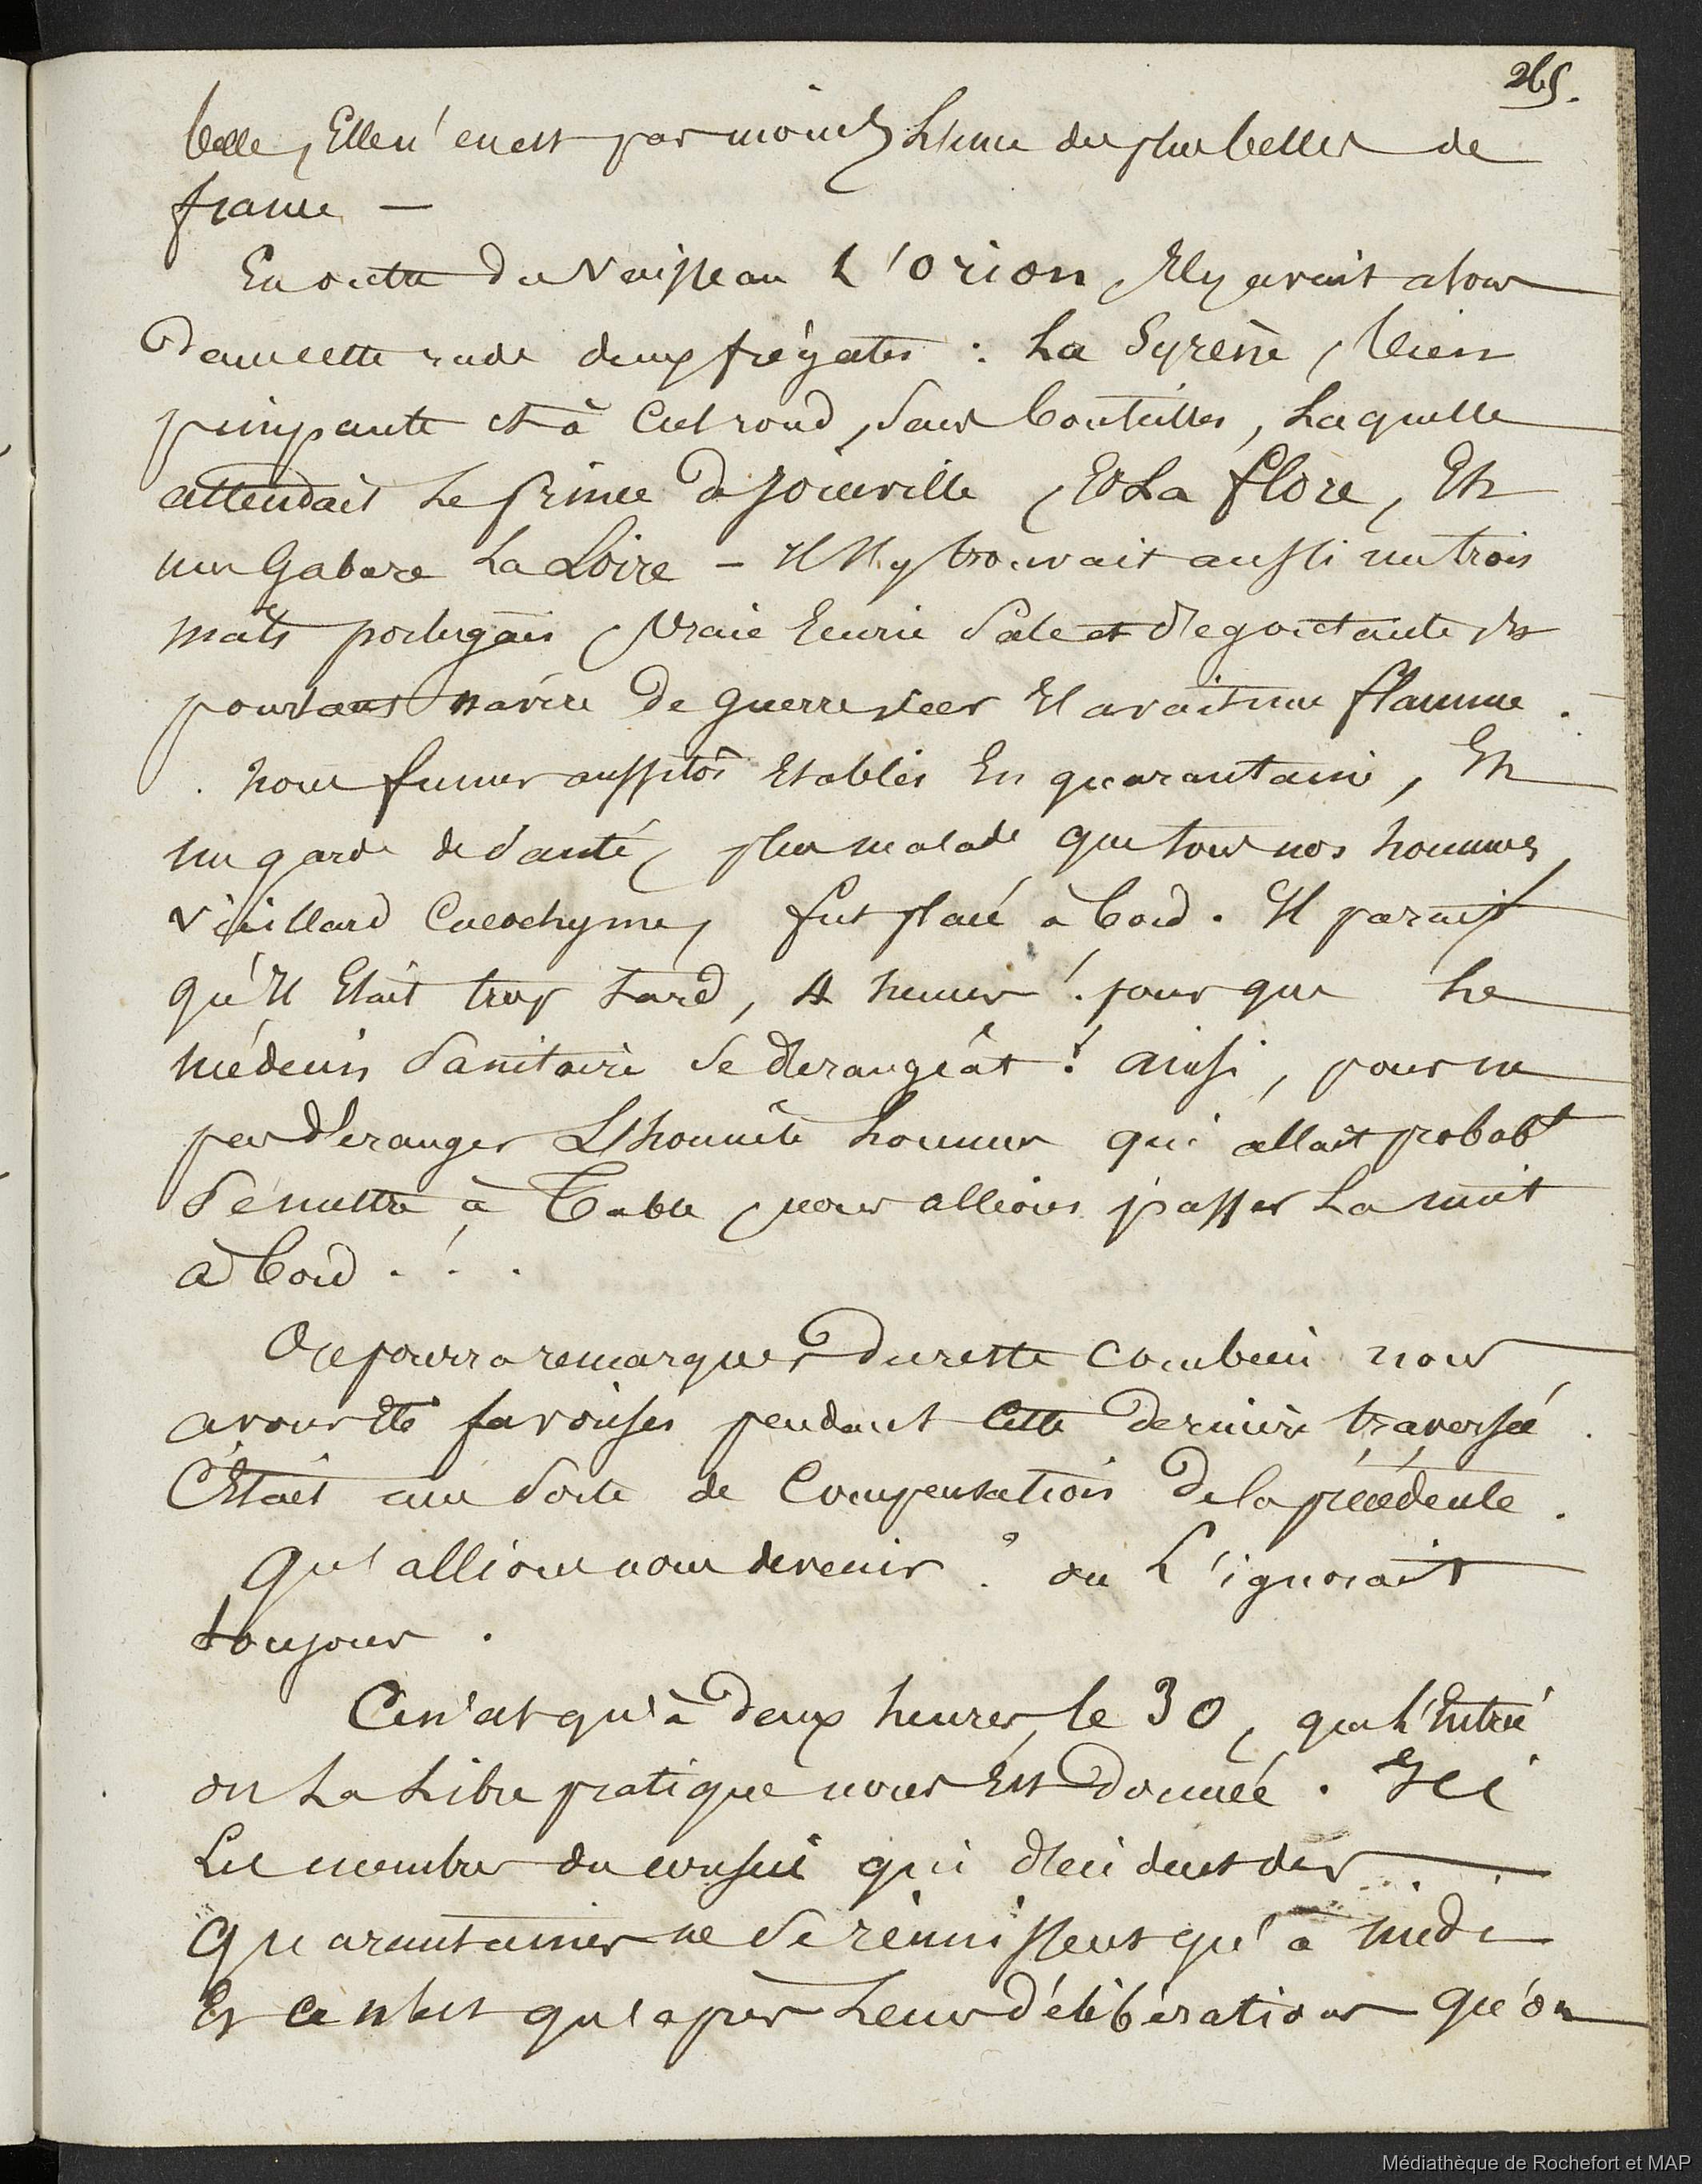 265.
belle, Elle n'en est pas moins L'une des plus belles de
france —
En outre du Vaisseau L'Orion, Il y avait alors
Dans cette rade deux frégates : La Syrène, bien
pimpante et à Cul rond, sans bouteilles, Laquelle
attendait Le prince de Joinville, Et La flore, Et
une Gabare La Loire — Il s'y trouvait aussi un trois
mâts portugais, Vraie Ecurie Sale et dégoutante et
pourtant navire De guerre, car Il avait une flamme.
Nous fumes aussitôt Etablis En quarantaine, Et
un garde de santé, plus malade que tous nos hommes,
vieillard Cacochyme, fut placé à bord. Il parait
qu'Il Etait trop tard, 4 heures ! pour que Le
médecin Sanitaire se dérangeât ! ainsi, pour ne
pas déranger L'honnête homme qui allait probabt
se mettre à Table, nous allions passer La nuit
à bord . ! . .
On pourra remarquer du reste combien nous
avons été favorisés pendant cette dernière traversée.
C'Etait une sorte de Compensation De la précédente.
Qu'allions nous devenir ? on L'ignorait
toujours.
Ce n'est qu'à deux heures, le 30, que L'Entrée
ou La Libre pratique nous Est donnée. Ici
Les membres du conseil qui décident des
Quarantaines ne se réunissent qu'à midi
Et ce n'est qu'après Leurs délibérations qu'on
Médiathèque de Rochefort et MAP